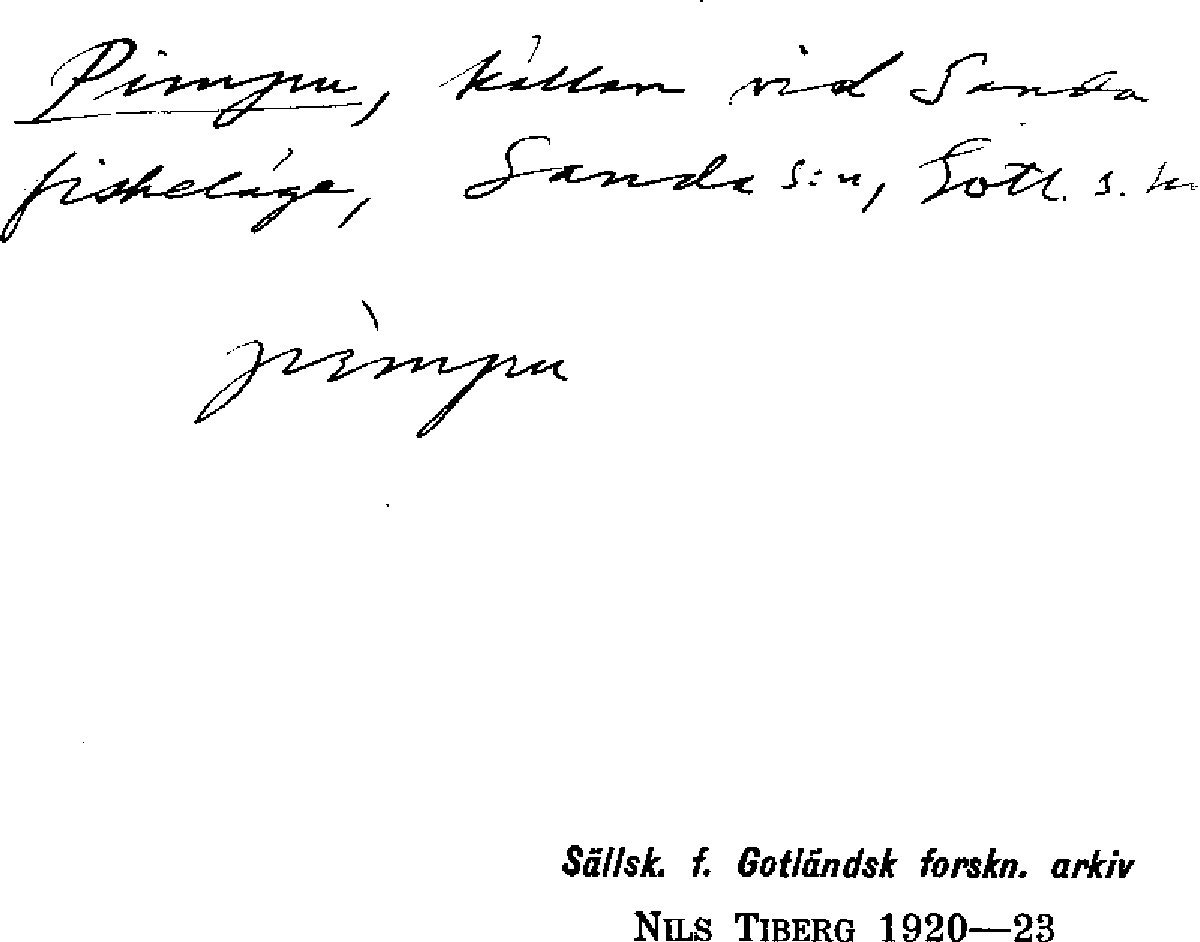 Pimpu, källan vid Sanda
fiskeläge, Sanda s:n, Gotl. s. hd
pìmpu
Sällsk. f. Gotländsk forskn. arkiv
NILS TIBERG 1920—23